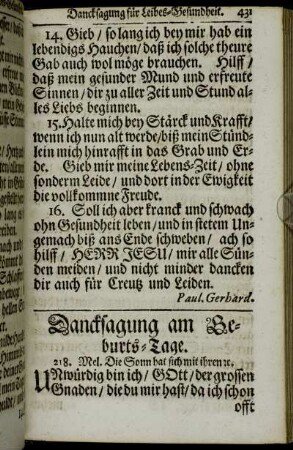 Dancksagung für Leibes-Gesundheit. 431
14. Gieb/ so lang ich bey mir hab ein
lebendigs Hauchen/ daß ich solche theure
Gab auch wol möge brauchen. Hilff/
daß mein gesunder Mund und erfreute
Sinnen/ dir zu aller Zeit und Stund al-
les Liebs beginnen.
15. Halte mich bey Stärck und Krafft/
wenn ich nun alt werde/ biß mein Stünd-
lein mich hinrafft in das Grab und Er-
de. Gieb mir meine Lebens-Zeit/ ohne
sonderm Leide/ und dort in der Ewigkeit
die vollkommne Freude.
16. Soll ich aber kranck und schwach
ohn Gesundheit leben/ und in stetem Un-
gemach biß ans Ende schweben/ ach so
hilff/ HERR JESU/ mir alle Sün-
den meiden/ und nicht minder dancken
dir auch für Creutz und Leiden.
Paul. Gerhard.
Dancksagung am Ge-
burts-Tage.
218. Mel. Die Sonn hat sich mit ihren ꝛc.
UNwürdig bin ich/ GOtt/ der grossen
Gnaden/ die du mir hast/ da ich schon
offt